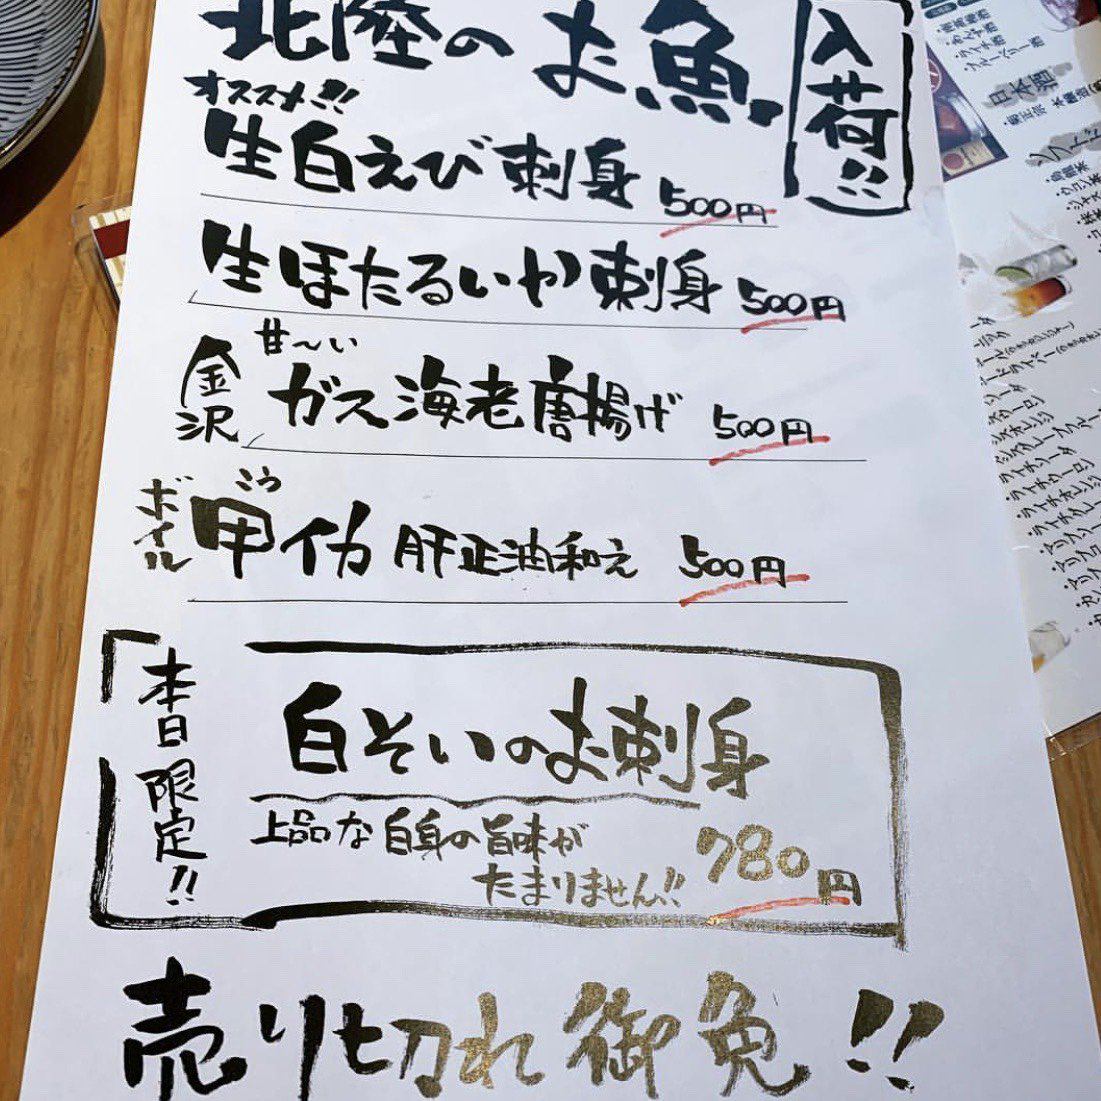 北陸のお魚
入荷!!
オススメ!!!
生白えび刺身 500円
生ほたるいか刺身 500円
金沢
甘〜い
ガス海老唐揚げ 500円
ボイル
こう
甲イカ 肝正油和え 500円
本日限定!!
白そいのお刺身
上品な白身の旨味が
たまりません!!
780円
売り切れ御免!!
日本酒